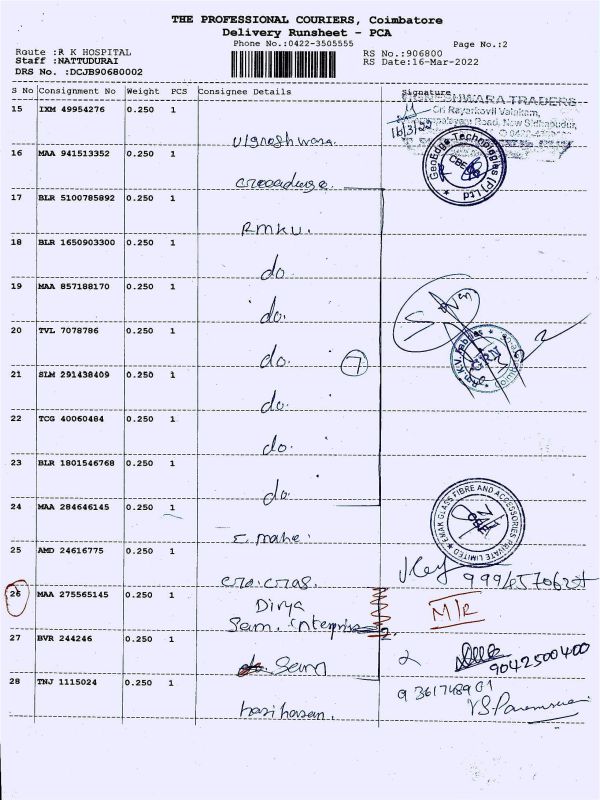 THE PROFESSIONAL COURIERS, Coimbatore
Delivery Runsheet - PCA
Phone No.:0422-3505555
Page No.:2
Route :R K HOSPITAL
RS No.:906800
Staff :NATTUDURAI
RS Date:16-Mar-2022
DRS No. :DCJB90680002
S No Consignment No Weight PCS Consignee Details Signature
15 IXM 49954276 0.250 1
VIGNESHWARA TRADERS
Sri Rayarkovil Valakam,
Road, New Sidhapudur,
16/3/22
Vigneshwara.
16 MAA 941513352 0.250 1
GeoEdge Technologies (P) Ltd
CBE
17 BLR 5100785892 0.250 1
RMKV.
18 BLR 1650903300 0.250 1
do.
19 MAA 857188170 0.250 1
do.
20 TVL 7078786 0.250 1
do. 7
21 SLM 291438409 0.250 1
do.
22 TCG 40060484 0.250 1
do.
23 BLR 1801546768 0.250 1
do.
24 MAA 284646145 0.250 1
EMAK GLASS FIBRE AND ACCESSORIES PRIVATE LIMITED
25 AMD 24616775 0.250 1
26 MAA 275565145 0.250 1
Divya
M/R
Sam. Enterprise
27 BVR 244246 0.250 1
do. Sam
2
9042500400
28 TNJ 1115024 0.250 1
9361748901
harihasan.